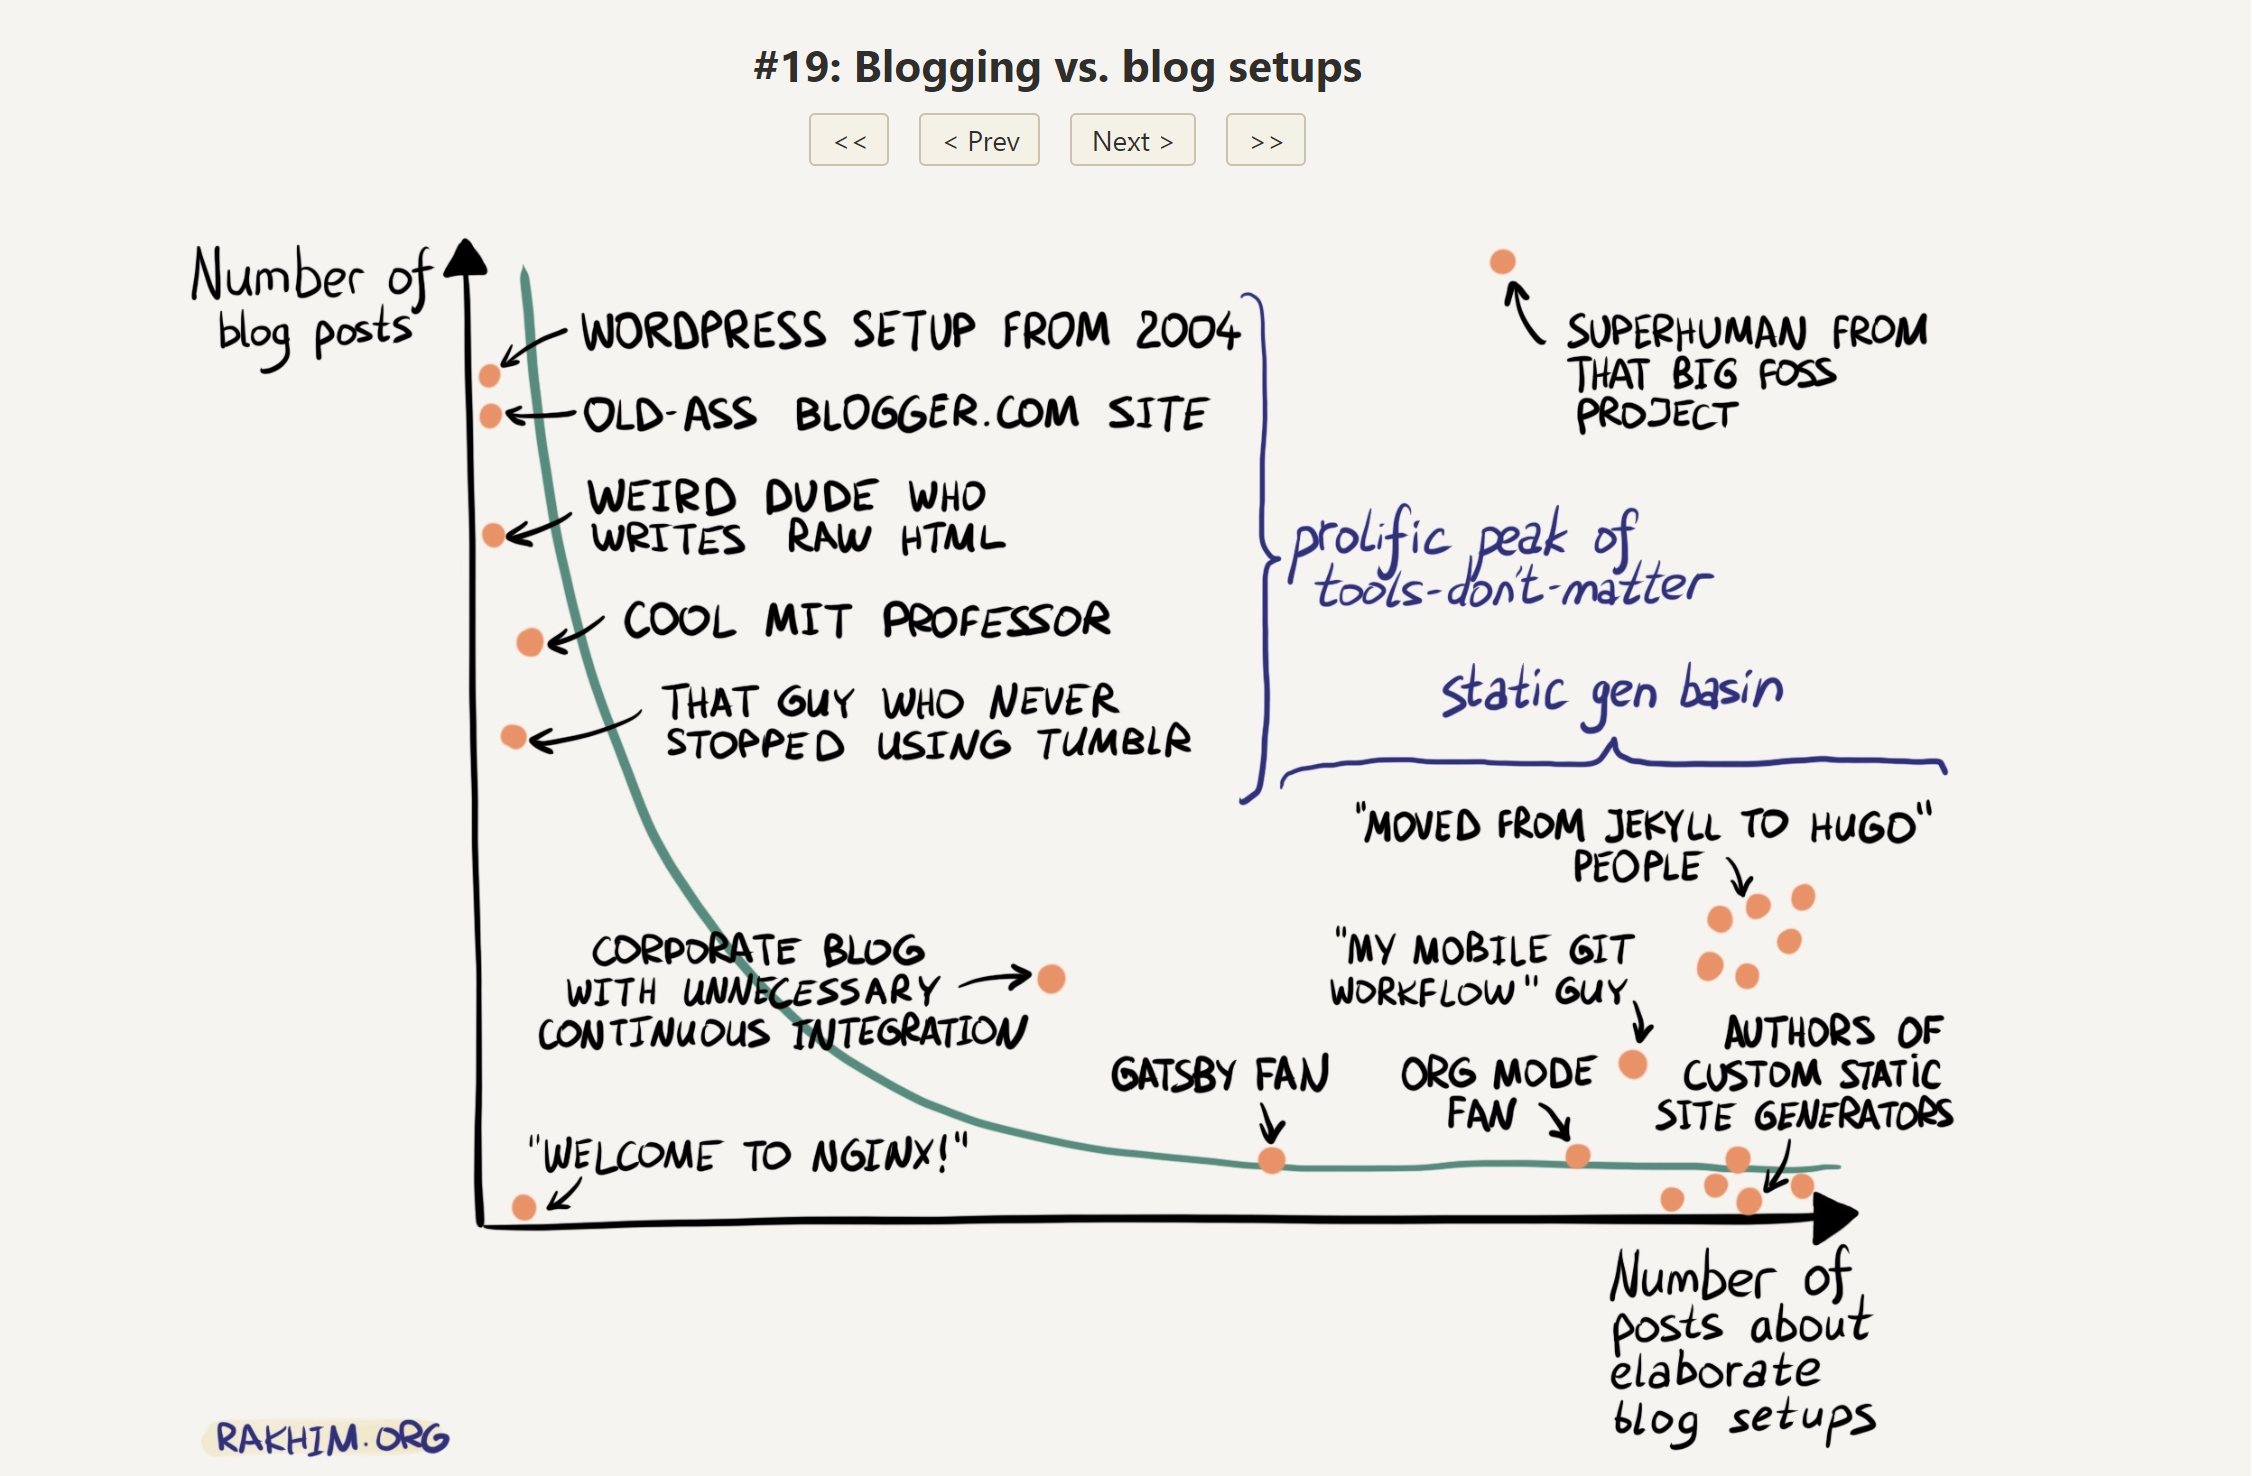 #19: Blogging vs. blog setups
<< < Prev Next > >>
Number of
blog posts
WORDPRESS SETUP FROM 2004
OLD-ASS BLOGGER.COM SITE
WEIRD DUDE WHO
WRITES RAW HTML
COOL MIT PROFESSOR
THAT GUY WHO NEVER
STOPPED USING TUMBLR
prolific peak of
tools-don't-matter
SUPERHUMAN FROM
THAT BIG FOSS
PROJECT
static gen basin
"MOVED FROM JEKYLL TO HUGO"
PEOPLE
"MY MOBILE GIT
WORKFLOW" GUY
CORPORATE BLOG
WITH UNNECESSARY
CONTINUOUS INTEGRATION
GATSBY FAN
ORG MODE
FAN
AUTHORS OF
CUSTOM STATIC
SITE GENERATORS
"WELCOME TO NGINX!"
Number of
posts about
elaborate
blog setups
RAKHIM.ORG